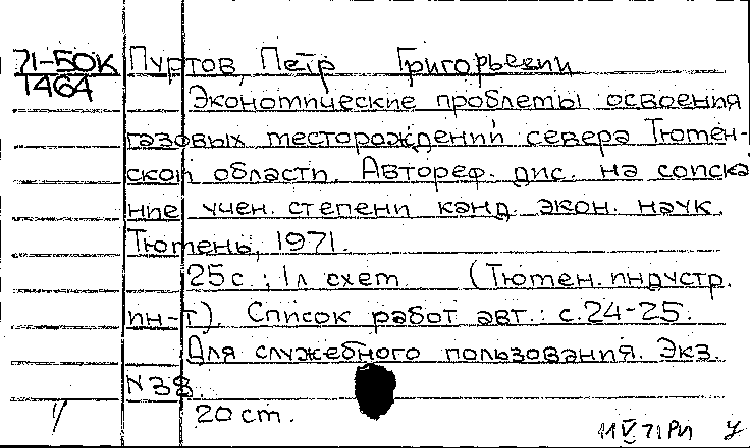 71-50К Пуртов, Петр Григорьевич
1464
Экономические проблемы освоения
газовых месторождений севера Тюмен-
ской области. Автореф. дис. на соиска
ние учен. степени канд. экон. наук.
Тюмень, 1971.
25 с.; 1 л схем. (Тюмен. индустр.
ин-т). Список работ авт.: с. 24-25.
Для служебного пользования. Экз.
N 38.
20 см.
11 V 71 РИ